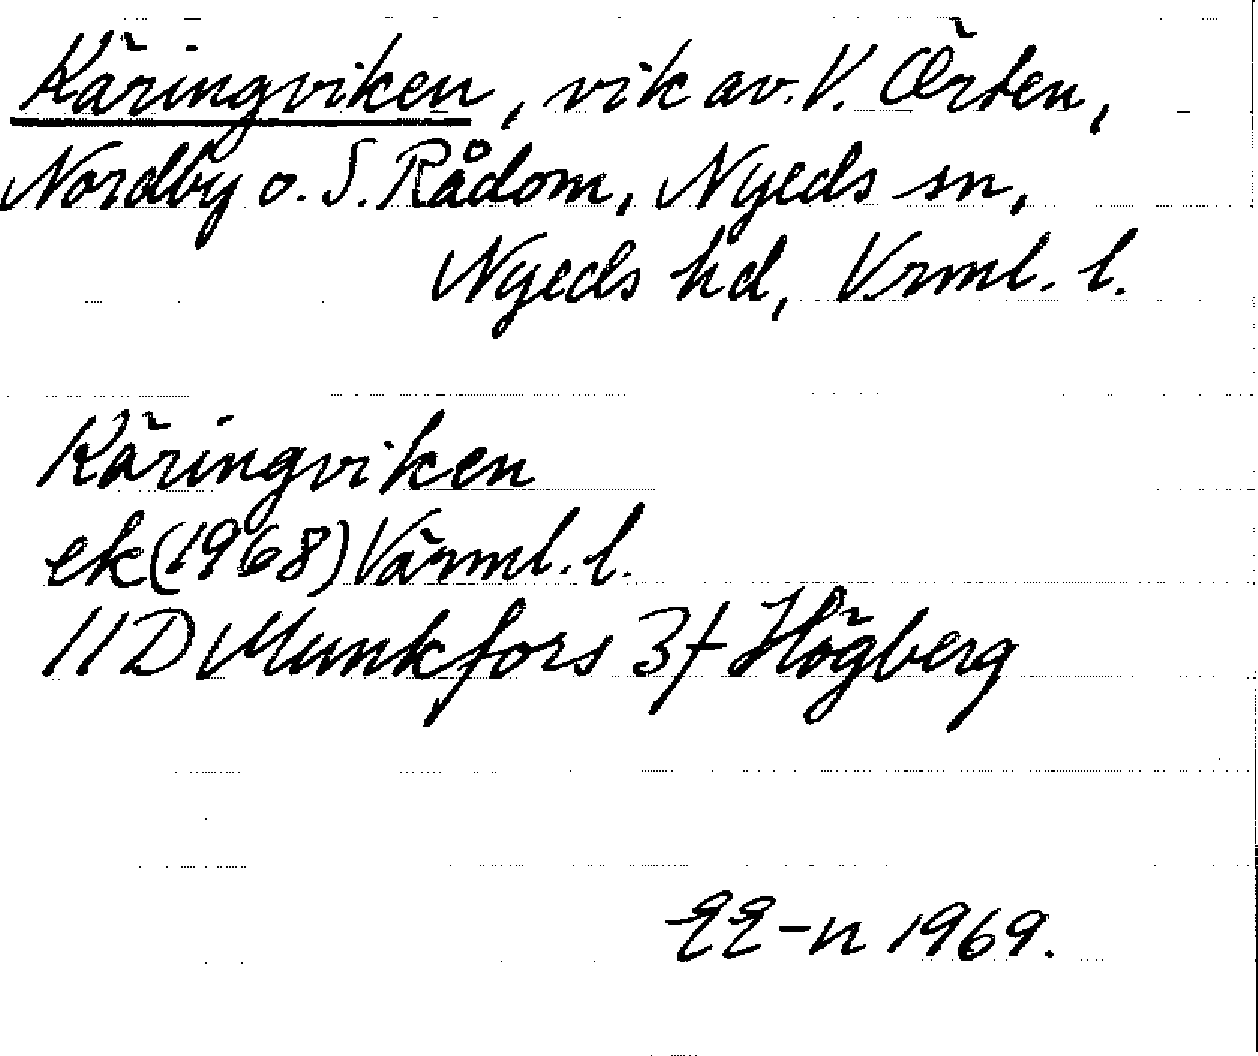 Käringviken, vik av V. Örten,
Nordby o. S. Rådom, Nyeds sn,
Nyeds hd, Vrml. l.
Käringviken
ek (1968) Värml. l.
11D Munkfors 3f Högberg
EE-n 1969.